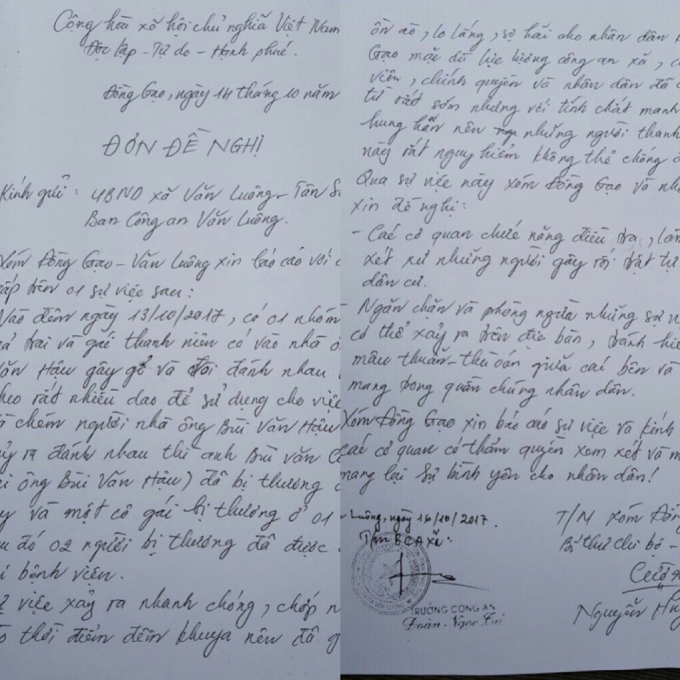 Cộng hòa xã hội chủ nghĩa Việt Nam
Độc lập - Tự do - Hạnh phúc.
Đồng Gạo, ngày 14 tháng 10 năm
ĐƠN ĐỀ NGHỊ
Kính gửi: UBND xã Văn Luông - Tân
Ban Công an Văn Luông.
Xóm Đồng Gạo - Văn Luông xin báo cáo với
cấp trên 01 sự việc sau:
Vào đêm ngày 13/10/2017, có 01 nhóm
cả trai và gái thanh niên có vào nhà
Văn Hậu gây gổ và đòi đánh nhau
theo rất nhiều dao để sử dụng cho việc
và chém người nhà ông Bùi Văn Hậu
xảy ra đánh nhau thì anh Bùi văn
ông Bùi Văn Hậu) đã bị thương
và một cô gái bị thương ở 01
đó 02 người bị thương đã được
bệnh viện.
việc xảy ra nhanh chóng, chớp
thời điểm đêm khuya nên đã
ồn ào, lo lắng, sợ hãi cho nhân dân
Gạo mặc dù lực lượng công an xã,
viên, chính quyền và nhân dân đã
từ rất sớm nhưng với tính chất manh
hung hãn nên những người thanh
này rất nguy hiểm không thể chống
Qua sự việc này xóm Đồng Gạo và
xin đề nghị:
- Các cơ quan chức năng điều tra, làm
xét xử những người gây rối trật tự
dân cư.
Ngăn chặn và phòng ngừa những sự
có thể xảy ra trên địa bàn, tránh
mâu thuẫn - thù oán giữa các bên và
mang trong quần chúng nhân dân.
Xóm Đồng Gạo xin báo cáo sự việc và kính
các cơ quan có thẩm quyền xem xét và
mang lại sự bình yên cho nhân dân!
Luông, ngày 16/10/2017. T/M xóm Đồng
T/M BCA xã: Bí thư chi bộ -
TRƯỞNG CÔNG AN
Nguyễn